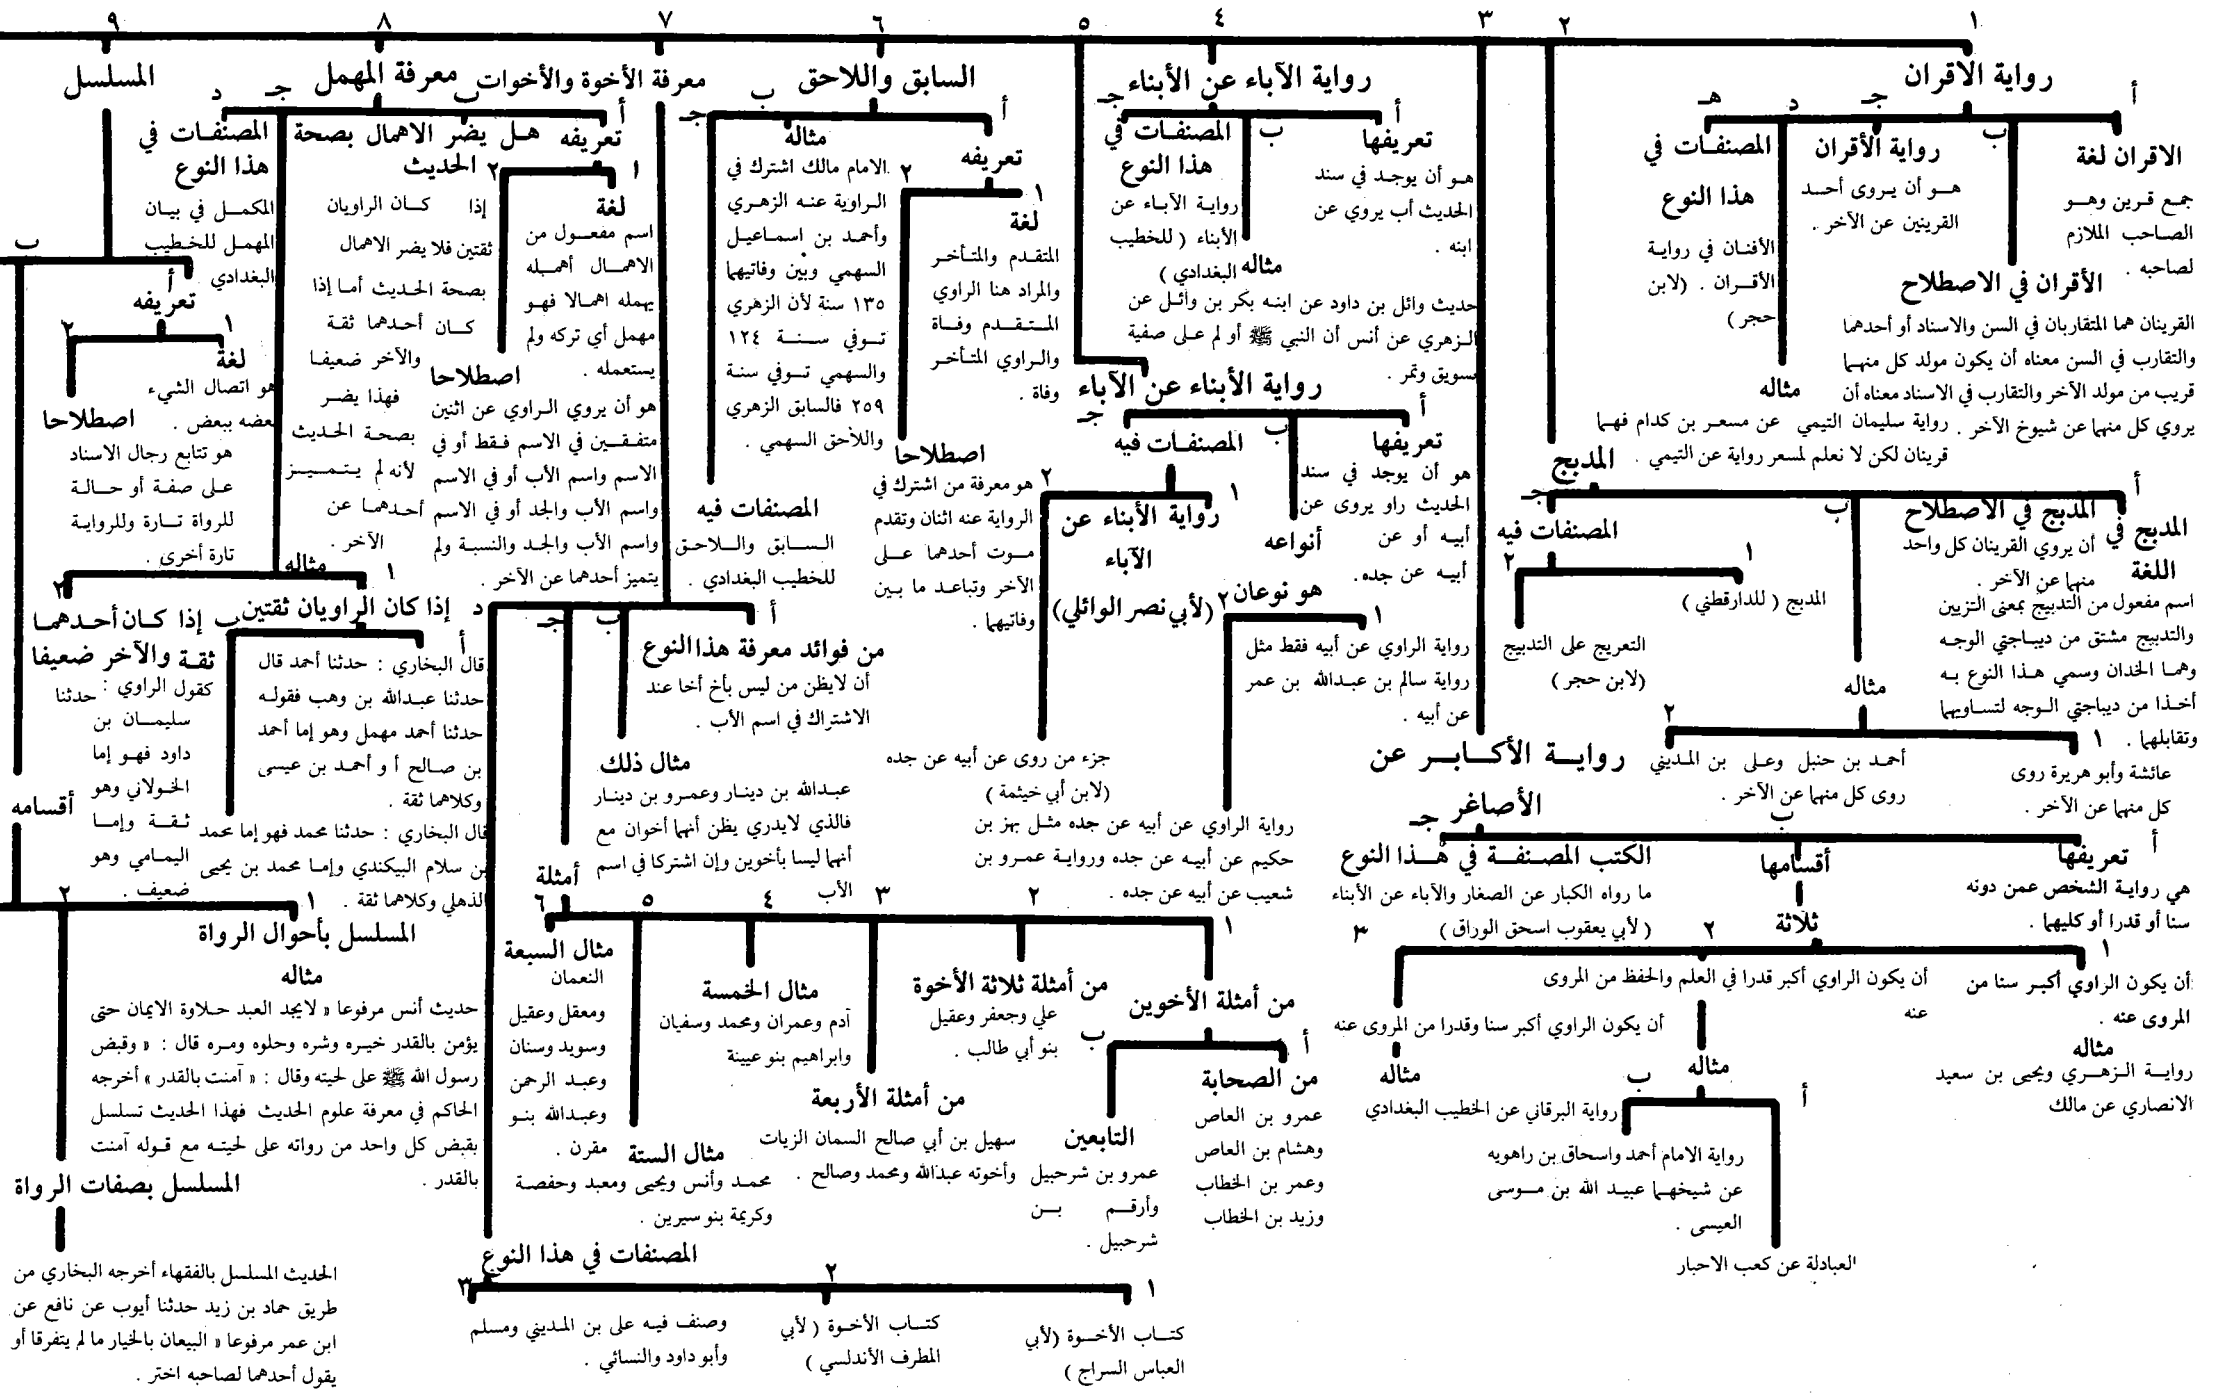 ١
٢
٣
٤
٥
٦
٧
٨
٩
رواية الاقران
أ
ب
جـ
د
هـ
الاقران لغة
جمع قرين وهو
الصاحب الملازم
لصاحبه .
الأقران في الاصطلاح
القرينان هما المتقاربان في السن والاسناد أو أحدهما
والتقارب في السن معناه أن يكون مولد كل منهما
قريب من مولد الآخر والتقارب في الاسناد معناه أن
يروي كل منهما عن شيوخ الآخر .
رواية الأقران
هو أن يروى أحد
القرينين عن الآخر .
مثاله
رواية سليمان التيمي عن مسعر بن كدام فهما
قرينان لكن لا نعلم لمسعر رواية عن التيمي .
المصنفات في
هذا النوع
الأفنان في رواية
الأقران . (لابن
حجر )
المدبج
أ
ب
جـ
المدبج في
اللغة
اسم مفعول من التدبيج بمعنى التزيين
والتدبيج مشتق من ديباجتي الوجه
وهما الخدان وسمي هذا النوع به
أخذا من ديباجتي الوجه لتساويهما
وتقابلهما .
المدبج في الاصطلاح
أن يروي القرينان كل واحد
منهما عن الآخر .
مثاله
١
عائشة وأبو هريرة روى
كل منهما عن الآخر .
٢
أحمد بن حنبل وعلى بن المديني
روى كل منهما عن الآخر .
المصنفات فيه
١
المدبج ( للدارقطني )
٢
التعريج على التدبيج
(لابن حجر )
رواية الأكابر عن
الأصاغر
أ
ب
جـ
تعريفها
هي رواية الشخص عمن دونه
سنا أو قدرا أو كليهما .
أقسامها
ثلاثة
١
أن يكون الراوي أكبر سنا من
المروى عنه .
مثاله
رواية الزهري ويحيى بن سعيد
الانصاري عن مالك
٢
أن يكون الراوي أكبر قدرا في العلم والحفظ من المروى
عنه
مثاله
أ
العبادلة عن كعب الاحبار
ب
رواية الامام أحمد واسحاق بن راهويه
عن شيخهما عبيد الله بن موسى
العيسى .
٣
أن يكون الراوي أكبر سنا وقدرا من المروى عنه
مثاله
رواية البرقاني عن الخطيب البغدادي
الكتب المصنفة في هذا النوع
ما رواه الكبار عن الصغار والآباء عن الأبناء
( لأبي يعقوب اسحق الوراق )
رواية الآباء عن الأبناء
أ
ب
جـ
تعريفها
هو أن يوجد في سند
الحديث أب يروي عن
ابنه .
مثاله
حديث وائل بن داود عن ابنه بكر بن وائل عن
الزهري عن أنس أن النبي ﷺ أو لم على صفية
بسويق وتمر .
المصنفات في
هذا النوع
رواية الآباء عن
الأبناء ( للخطيب
البغدادي )
رواية الأبناء عن الآباء
أ
ب
جـ
تعريفها
هو أن يوجد في سند
الحديث راو يروى عن
أبيه أو عن
أبيه عن جده.
أنواعه
هو نوعان
١
رواية الراوي عن أبيه فقط مثل
رواية سالم بن عبدالله بن عمر
عن أبيه .
٢
رواية الراوي عن أبيه عن جده مثل بهز بن
حكيم عن أبيه عن جده ورواية عمرو بن
شعيب عن أبيه عن جده .
المصنفات فيه
١
رواية الأبناء عن
الآباء
(لأبي نصر الوائلي)
٢
جزء من روى عن أبيه عن جده
(لابن أبي خيثمة )
السابق واللاحق
أ
ب
جـ
تعريفه
١
لغة
المتقدم والمتأخر
والمراد هنا الراوي
المتقدم وفاة
والراوي المتأخر
وفاة .
٢
اصطلاحا
هو معرفة من اشترك في
الرواية عنه اثنان وتقدم
موت أحدهما على
الآخر وتباعد ما بين
وفاتيهما .
مثاله
الامام مالك اشترك في
الراوية عنه الزهري
وأحمد بن اسماعيل
السهمي وبين وفاتيهما
١٣٥ سنة لأن الزهري
توفي سنة ١٢٤
والسهمي توفي سنة
٢٥٩ فالسابق الزهري
واللاحق السهمي .
المصنفات فيه
السابق واللاحق
للخطيب البغدادي .
معرفة الأخوة والأخوات
أ
ب
جـ
د
من فوائد معرفة هذا النوع
أن لايظن من ليس بأخ أخا عند
الاشتراك في اسم الأب .
مثال ذلك
عبدالله بن دينار وعمرو بن دينار
فالذي لايدري يظن أنهما أخوان مع
أنهما ليسا بأخوين وإن اشتركا في اسم
الأب
أمثلة
١
من أمثلة الأخوين
أ
من الصحابة
عمرو بن العاص
وهشام بن العاص
وعمر بن الخطاب
وزيد بن الخطاب
ب
التابعين
عمرو بن شرحبيل
وأرقم بن
شرحبيل .
٢
من أمثلة ثلاثة الأخوة
علي وجعفر وعقيل
بنو أبي طالب .
٣
من أمثلة الأربعة
سهيل بن أبي صالح السمان الزيات
وأخوته عبدالله ومحمد وصالح .
٤
مثال الخمسة
آدم وعمران ومحمد وسفيان
وابراهيم بنو عيينة
٥
مثال الستة
محمد وأنس ويحيى ومعبد وحفصة
وكريمة بنو سيرين .
٦
مثال السبعة
النعمان
ومعقل وعقيل
وسويد وسنان
وعبد الرحمن
وعبدالله بنو
مقرن .
المصنفات في هذا النوع
١
كتاب الأخوة (لأبي
العباس السراج )
٢
كتاب الأخوة ( لأبي
المطرف الأندلسي )
٣
وصنف فيه على بن المديني ومسلم
وأبو داود والنسائي .
معرفة المهمل
أ
ب
جـ
د
تعريفه
١
لغة
اسم مفعول من
الاهمال أهمله
يهمله اهمالا فهو
مهمل أي تركه ولم
يستعمله .
٢
اصطلاحا
هو أن يروي الراوي عن اثنين
متفقين في الاسم فقط أو في
الاسم واسم الأب أو في الاسم
واسم الأب والجد أو في الاسم
واسم الأب والجد والنسبة ولم
يتميز أحدهما عن الآخر .
هل يضر الاهمال بصحة
الحديث
إذا كان الراويان
ثقتين فلا يضر الاهمال
بصحة الحديث أما إذا
كان أحدهما ثقة
والآخر ضعيفا
فهذا يضر
بصحة الحديث
لأنه لم يتميز
أحدهما عن
الآخر .
مثاله
١
إذا كان الراويان ثقتين
أ
قال البخاري : حدثنا أحمد قال
حدثنا عبدالله بن وهب فقوله
حدثنا أحمد مهمل وهو إما أحمد
بن صالح أ و أحمد بن عيسى
وكلاهما ثقة .
ب
قال البخاري : حدثنا محمد فهو إما محمد
بن سلام البيكندي وإما محمد بن يحيى
الذهلي وكلاهما ثقة .
٢
إذا كان أحدهما
ثقة والآخر ضعيفا
كقول الراوي : حدثنا
سليمان بن
داود فهو إما
الخولاني وهو
ثقة وإما
اليمامي وهو
ضعيف .
المصنفات في
هذا النوع
المكمل في بيان
المهمل للخطيب
البغدادي
المسلسل
أ
ب
تعريفه
١
لغة
هو اتصال الشيء
بعضه ببعض .
٢
اصطلاحا
هو تتابع رجال الاسناد
على صفة أو حالة
للرواة تارة وللرواية
تارة أخرى .
أقسامه
١
المسلسل بأحوال الرواة
مثاله
حديث أنس مرفوعا « لايجد العبد حلاوة الايمان حتى
يؤمن بالقدر خيره وشره وحلوه ومره قال : « وقبض
رسول الله ﷺ على لحيته وقال : « آمنت بالقدر » أخرجه
الحاكم في معرفة علوم الحديث فهذا الحديث تسلسل
بقبض كل واحد من رواته على لحيته مع قوله آمنت
بالقدر .
٢
المسلسل بصفات الرواة
الحديث المسلسل بالفقهاء أخرجه البخاري من
طريق حماد بن زيد حدثنا أيوب عن نافع عن
ابن عمر مرفوعا « البيعان بالخيار ما لم يتفرقا أو
يقول أحدهما لصاحبه اختر .